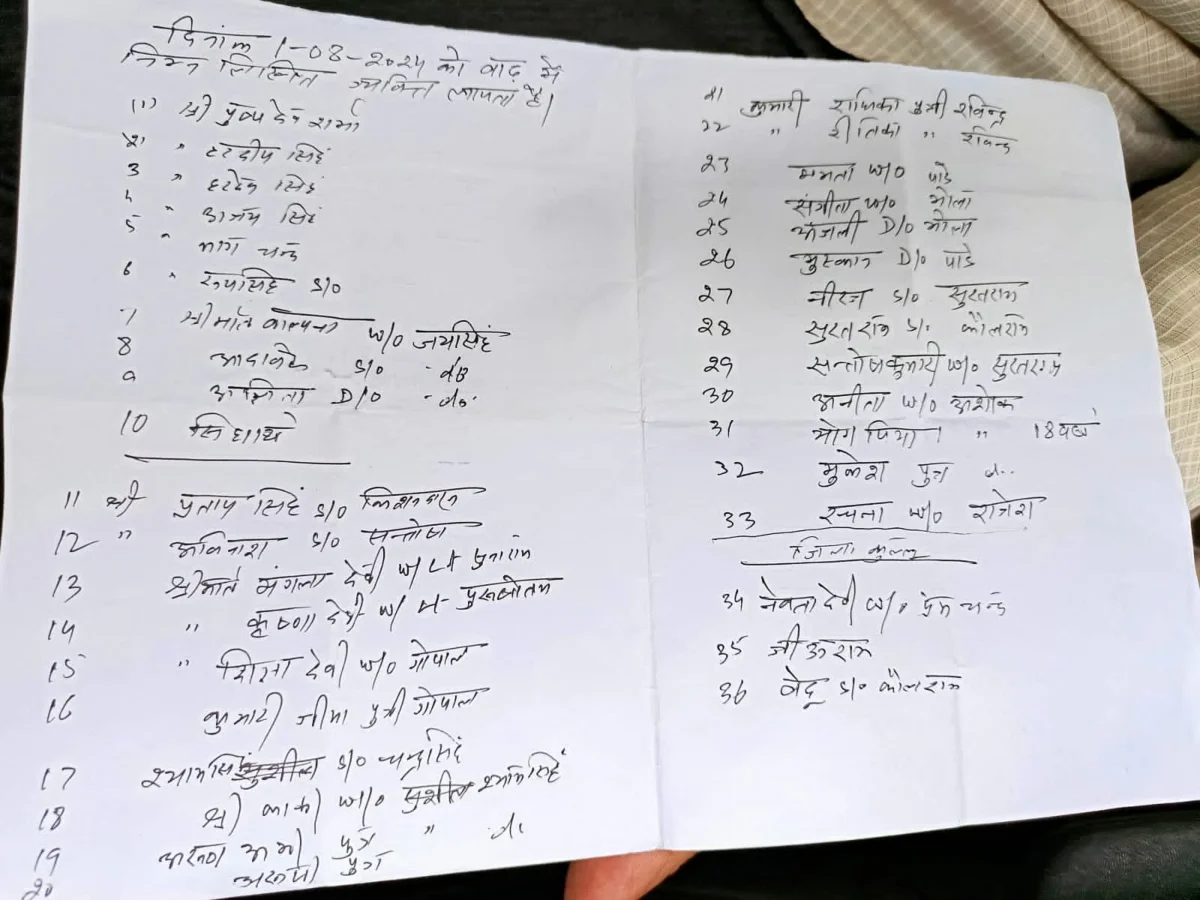 दिनांक 1-08-2024 को बाढ़ में
निम्न लिखित व्यक्ति लापता है।
(1) श्री पुष्प देव शर्मा
2 " हरदीप सिहं
3 " हरदेव सिहं
4 " अजय सिहं
5 " भाग चन्द
6 " रूपसिहं S/O
7 श्रीमति कल्पना W/O जयसिहं
8 S/O do
9 D/O do.
10 सिधार्थ
11 श्री प्रताप सिहं S/O
12 " अविनाश S/O सन्तोष
13 श्रीमति मंगला देवी W/
14 " कृष्णा देवी W/ पुरूषोतम
15 " शिला देवी W/O गोपाल
16 कुमारी जीया पुत्री गोपाल
17 श्यामसिहं सुशील S/O चन्द्रसिहं
18 W/O सुशील श्यामसिहं
19 पुत्र " do
20 पुत्र
21 कुमारी राधिका पुत्री रविन्द्र
22 " रीतिका " रविन्द्र
23 ममता W/O पांडे
24 संगीता W/O भोला
25 अंजली D/O भोला
26 मुस्कान D/O पांडे
27 नीरज S/O सुरतराम
28 सुरत राम S/O कौलराम
29 सन्तोष कुमारी W/O सुरतराम
30 अनीता W/O अशोक
31 योग प्रिया " 18 वर्ष
32 मुकेश पुत्र d..
33 रचना W/O राजेश
जिला कुल्लू
34 देवी W/O प्रेम चन्द
35
36 वेदू S/O कौल राम